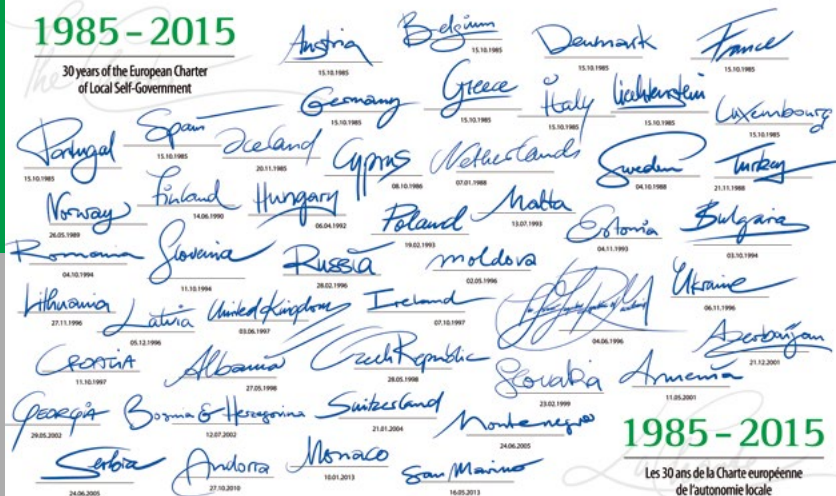 1985 – 2015
30 years of the European Charter
of Local Self-Government
Austria
15.10.1985
Belgium
15.10.1985
Denmark
15.10.1985
France
15.10.1985
Germany
15.10.1985
Greece
15.10.1985
Italy
15.10.1985
Liechtenstein
15.10.1985
Luxembourg
15.10.1985
Portugal
15.10.1985
Spain
15.10.1985
Iceland
20.11.1985
Cyprus
08.10.1986
Netherlands
07.01.1988
Sweden
04.10.1988
Turkey
21.11.1988
Norway
26.05.1989
Finland
14.06.1990
Hungary
06.04.1992
Poland
19.02.1993
Malta
13.07.1993
Estonia
04.11.1993
Bulgaria
03.10.1994
Romania
04.10.1994
Slovenia
11.10.1994
Russia
28.02.1996
moldova
02.05.1996
04.06.1996
Ukraine
06.11.1996
Lithuania
27.11.1996
Latvia
05.12.1996
United Kingdom
03.06.1997
Ireland
07.10.1997
Croatia
11.10.1997
Albania
27.05.1998
Czech Republic
28.05.1998
Slovakia
23.02.1999
Armenia
11.05.2001
Azerbaijan
21.12.2001
Georgia
29.05.2002
Bosnia & Herzegovina
12.07.2002
Switzerland
21.01.2004
Montenegro
24.06.2005
Serbia
24.06.2005
Andorra
27.10.2010
Monaco
10.01.2013
San Marino
16.05.2013
1985 – 2015
Les 30 ans de la Charte européenne
de l'autonomie locale